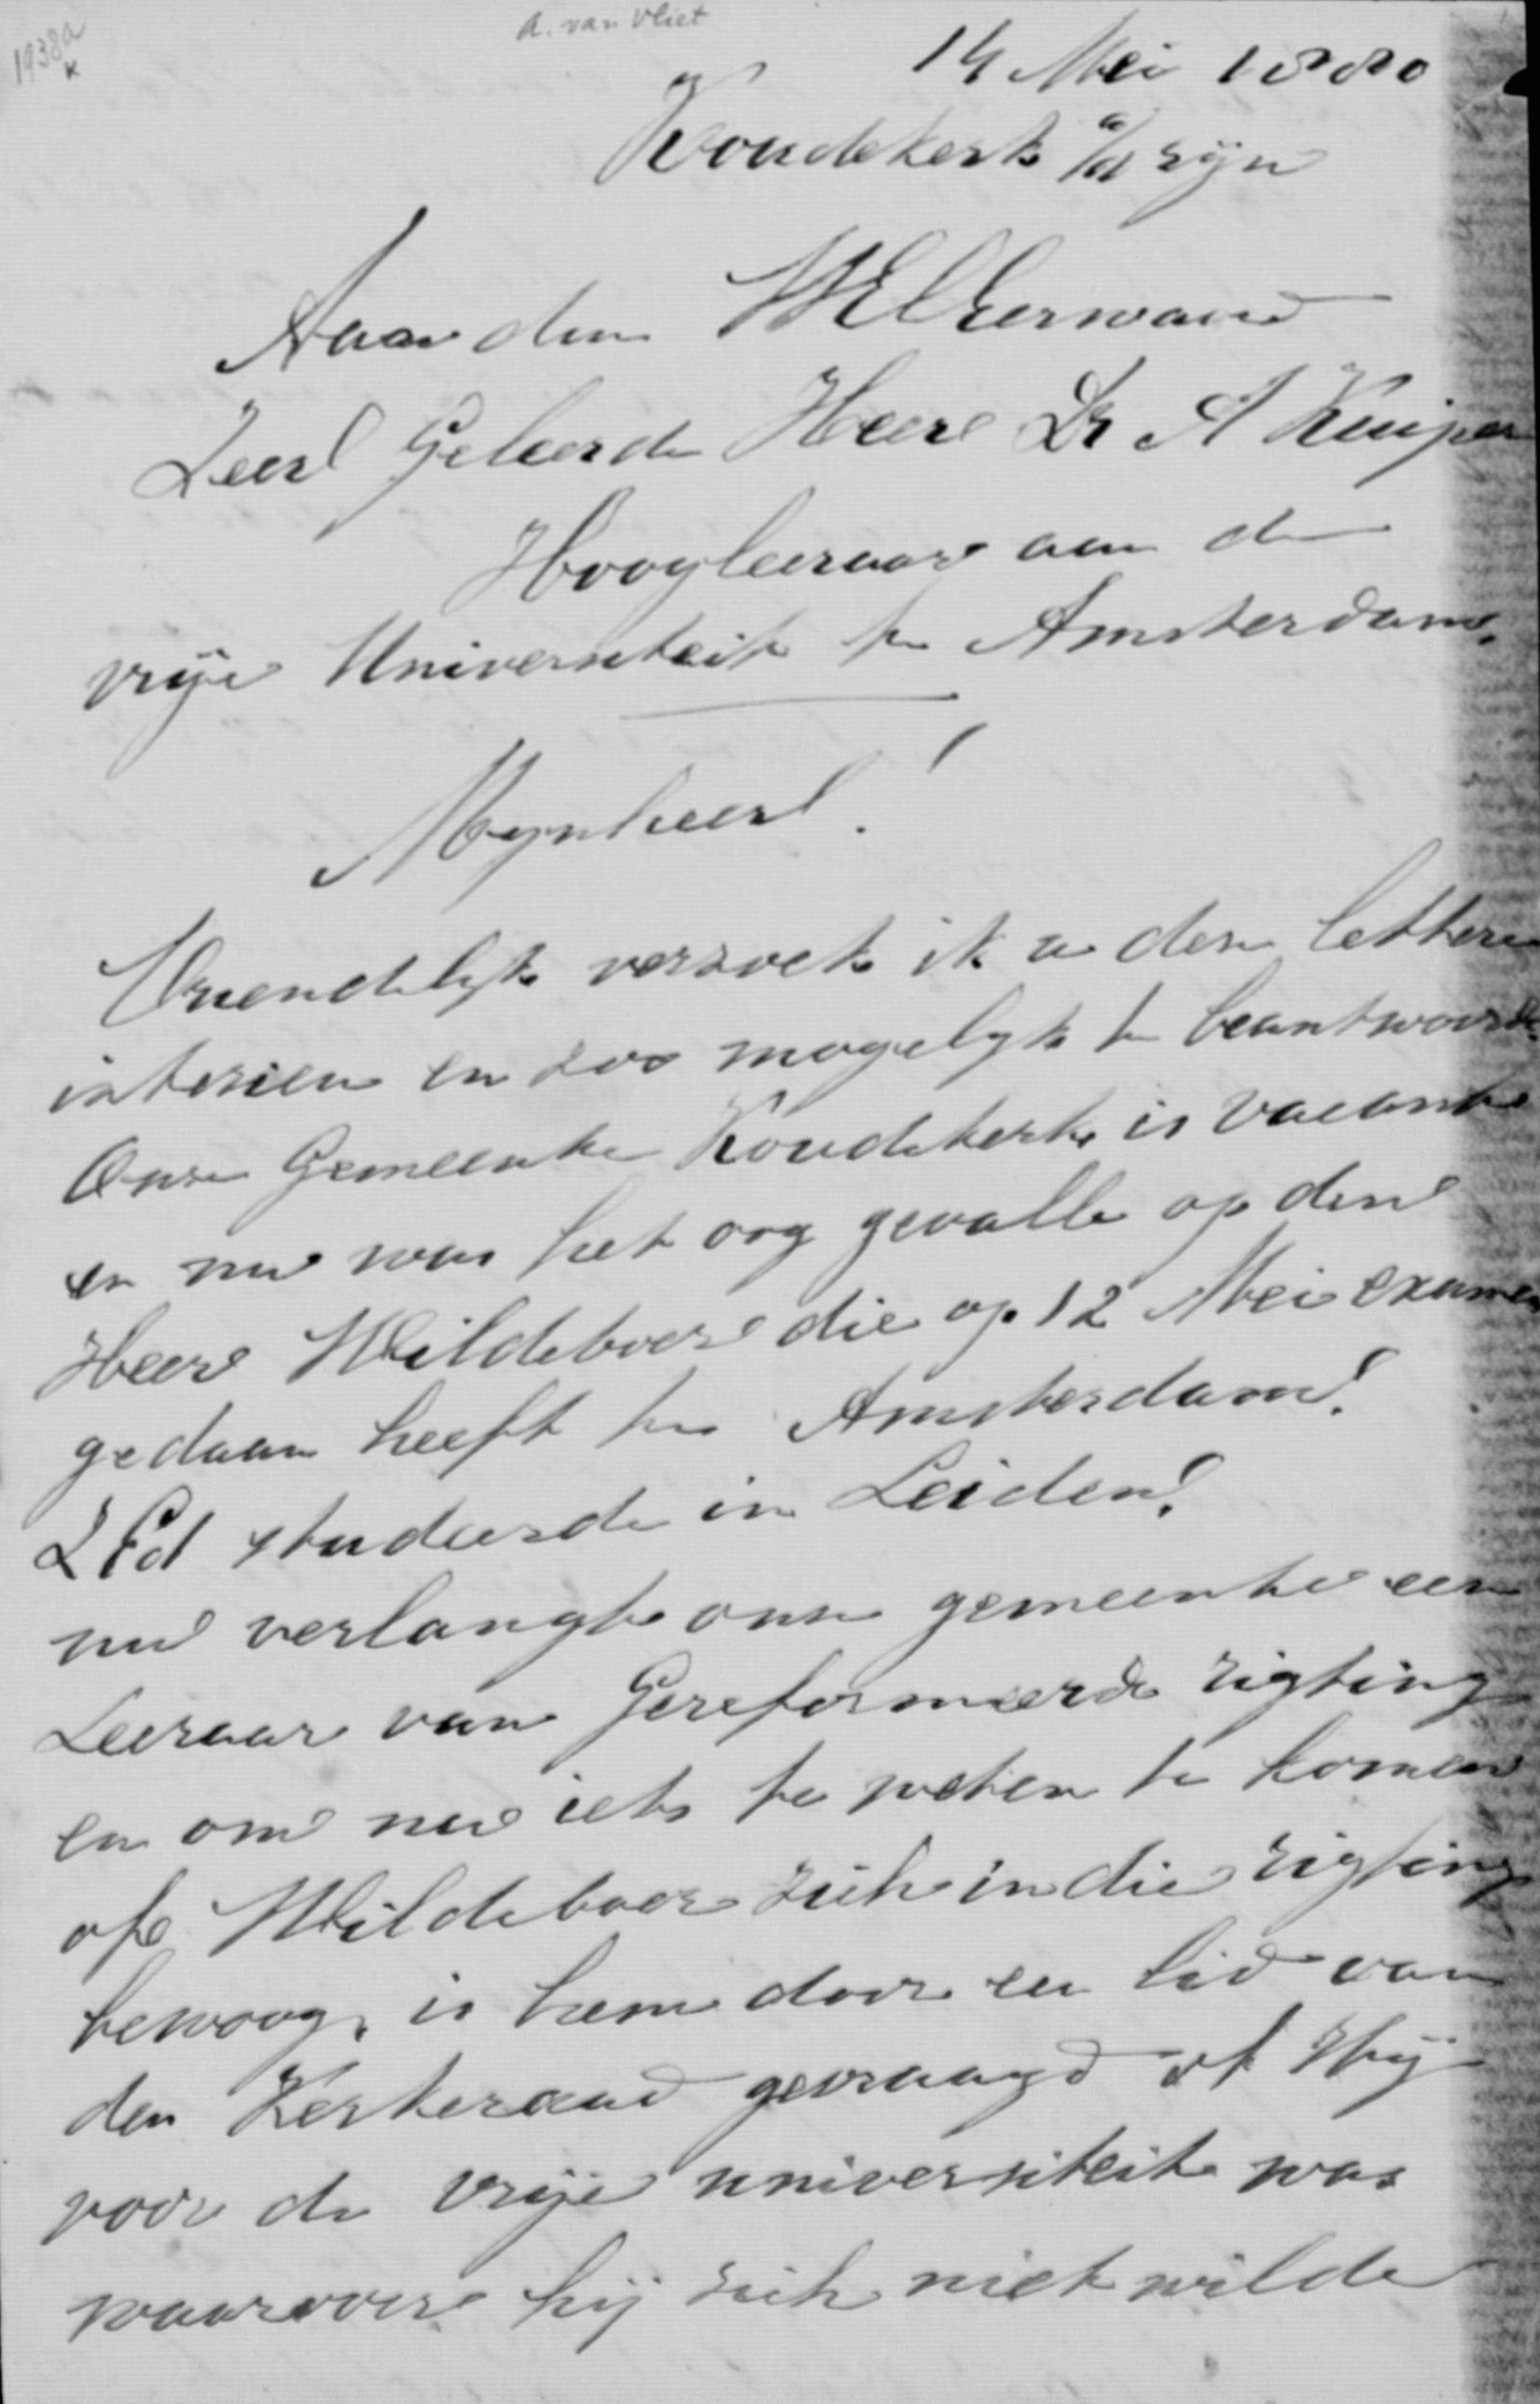 1938a
k
A. van Vliet
14 Mei 1880
Koudekerk a/d rijn
Aan den WelEerwaard
Zeer Geleerde Heere Dr A Kuijper
Hoogleeraar aan de
vrije Universiteit te Amsterdam.
Mynheer!
Vriendelyk verzoek ik u dese lettere
intezien en zoo mogelyk te beantwoorde
Onze Gemeente Koudekerk is vacant
en nu was het oog gevalle op den
Heere Wildeboer die op 12 Mei exame
gedaan heeft te Amsterdam.
ZEd studeerde in Leiden.
nu verlangt onze gemeente een
Leeraar van Gereformeerde rigting
en om nu iets te weten te komen
of Wildeboer zich in die rigting
bewoog, is hem door een lid van
den Kerkeraad gevraagd of Hij
voor de vrije universiteit was
waarover hij zich niet wilde